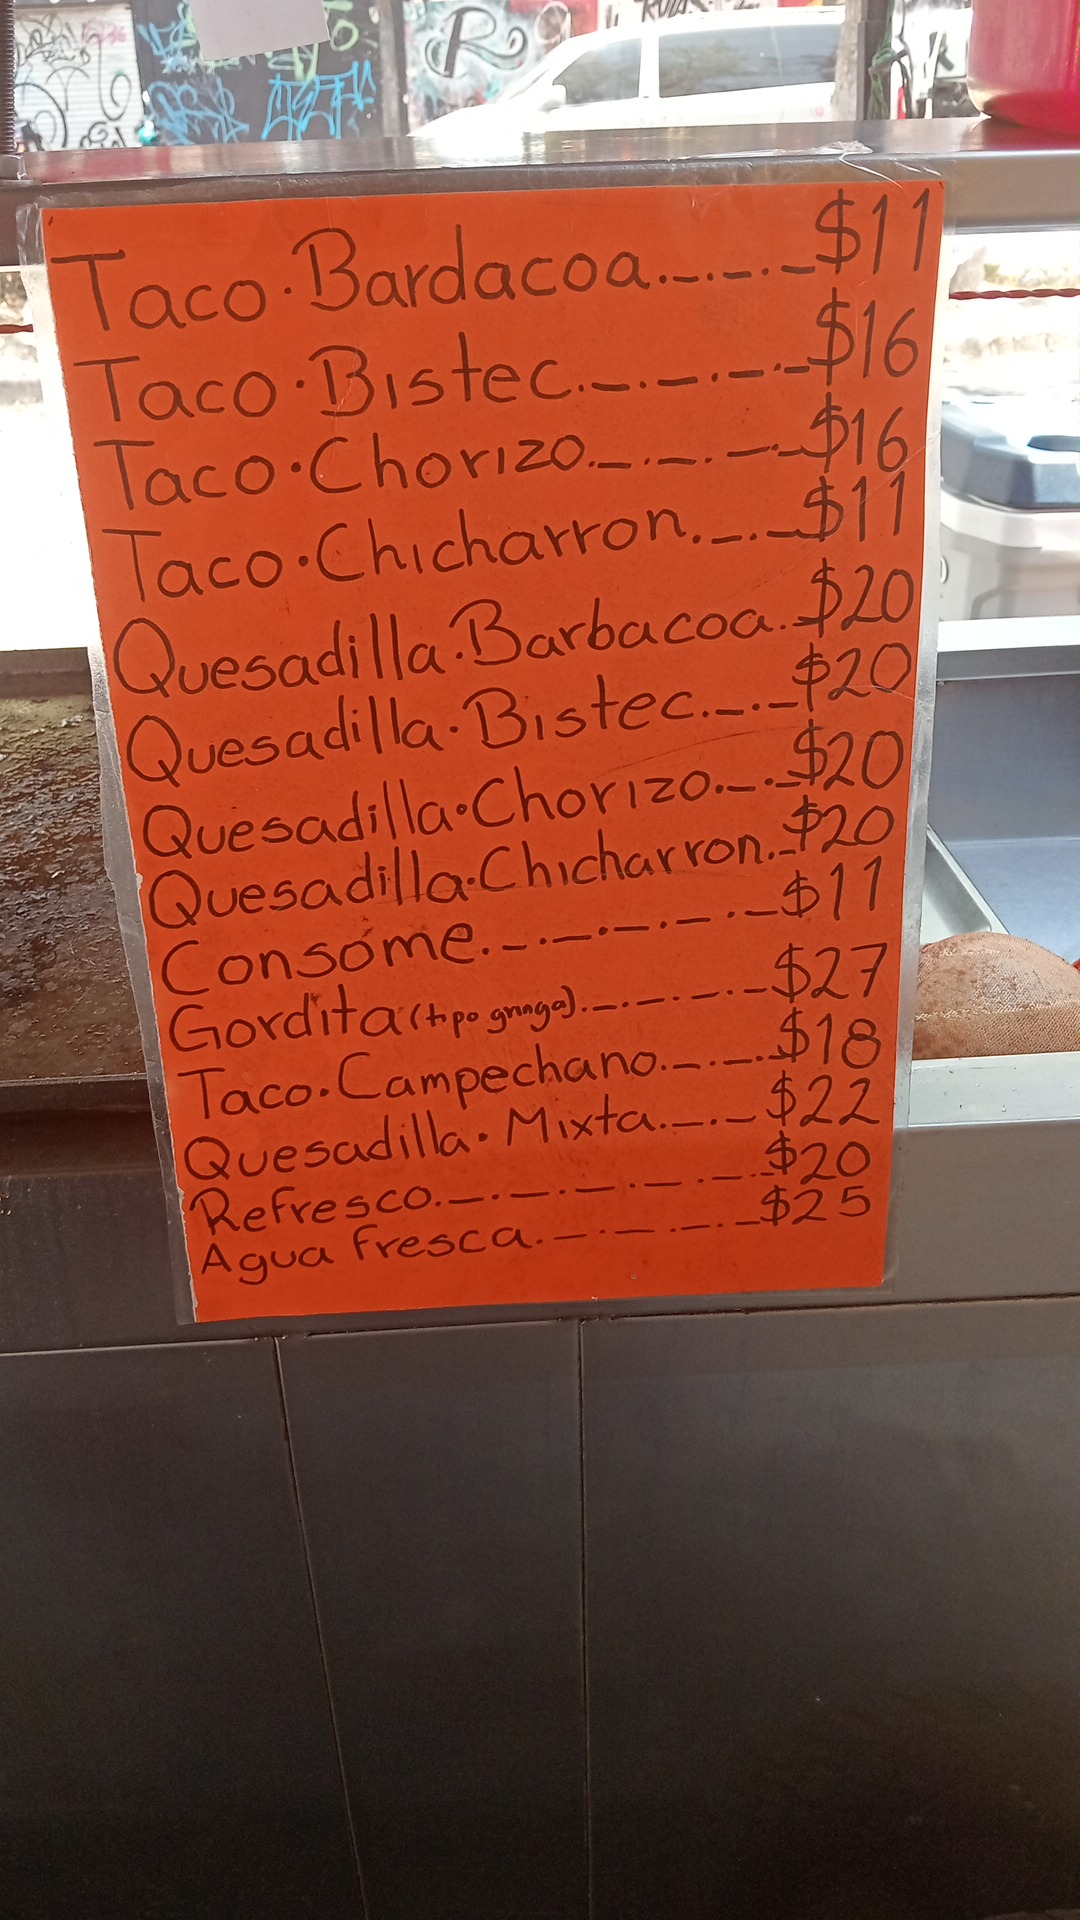 Taco.Bardacoa._._._$11
Taco.Bistec._._._._$16
Taco.Chorizo._._._._$16
Taco.Chicharron._._$11
Quesadilla.Barbacoa.$20
Quesadilla.Bistec._._$20
Quesadilla.Chorizo._._$20
Quesadilla.Chicharron._$20
Consome._._._._._$11
Gordita (tipo gringa)._._._$27
Taco.Campechano._._.$18
Quesadilla.Mixta._._$22
Refresco._._._._._.$20
Agua fresca._._._._$25